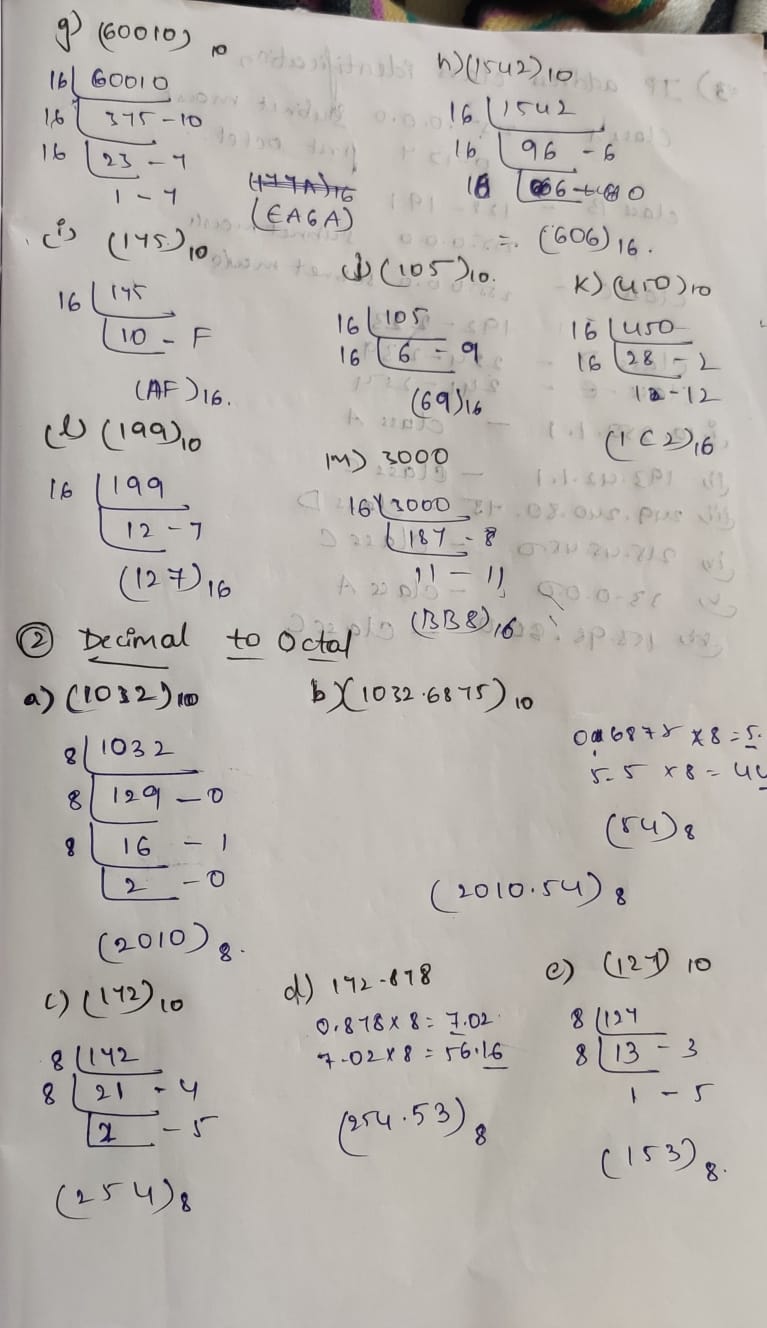 g) (60010)10
16 60010
16 375-10
16 23-7
1-7
(EA6A)
h) (1542)10
16 1542
16 96-6
= (606)16.
(i) (175)10
16 175
10-F
(AF)16.
(J) (105)10.
16 105
16 6-9
(69)16
K) (450)10
16 450
16 28-2
12-12
(1C2)16
(l) (199)10
16 199
12-7
(127)16
m) 3000
16 3000
187-8
11-11
(BB8)16
② Decimal to Octal
a) (1032)10
8 1032
8 129-0
8 16-1
2-0
(2010)8.
b) (1032.6875)10
0.6875 x 8 = 5.
5.5 x 8 = 44
(54)8
(2010.54)8
c) (172)10
8 172
8 21-4
2-5
(254)8
d) 172.878
0.878 x 8 = 7.02
7.02 x 8 = 56.16
(254.53)8
e) 10
8
8 13-3
1-5
(153)8.